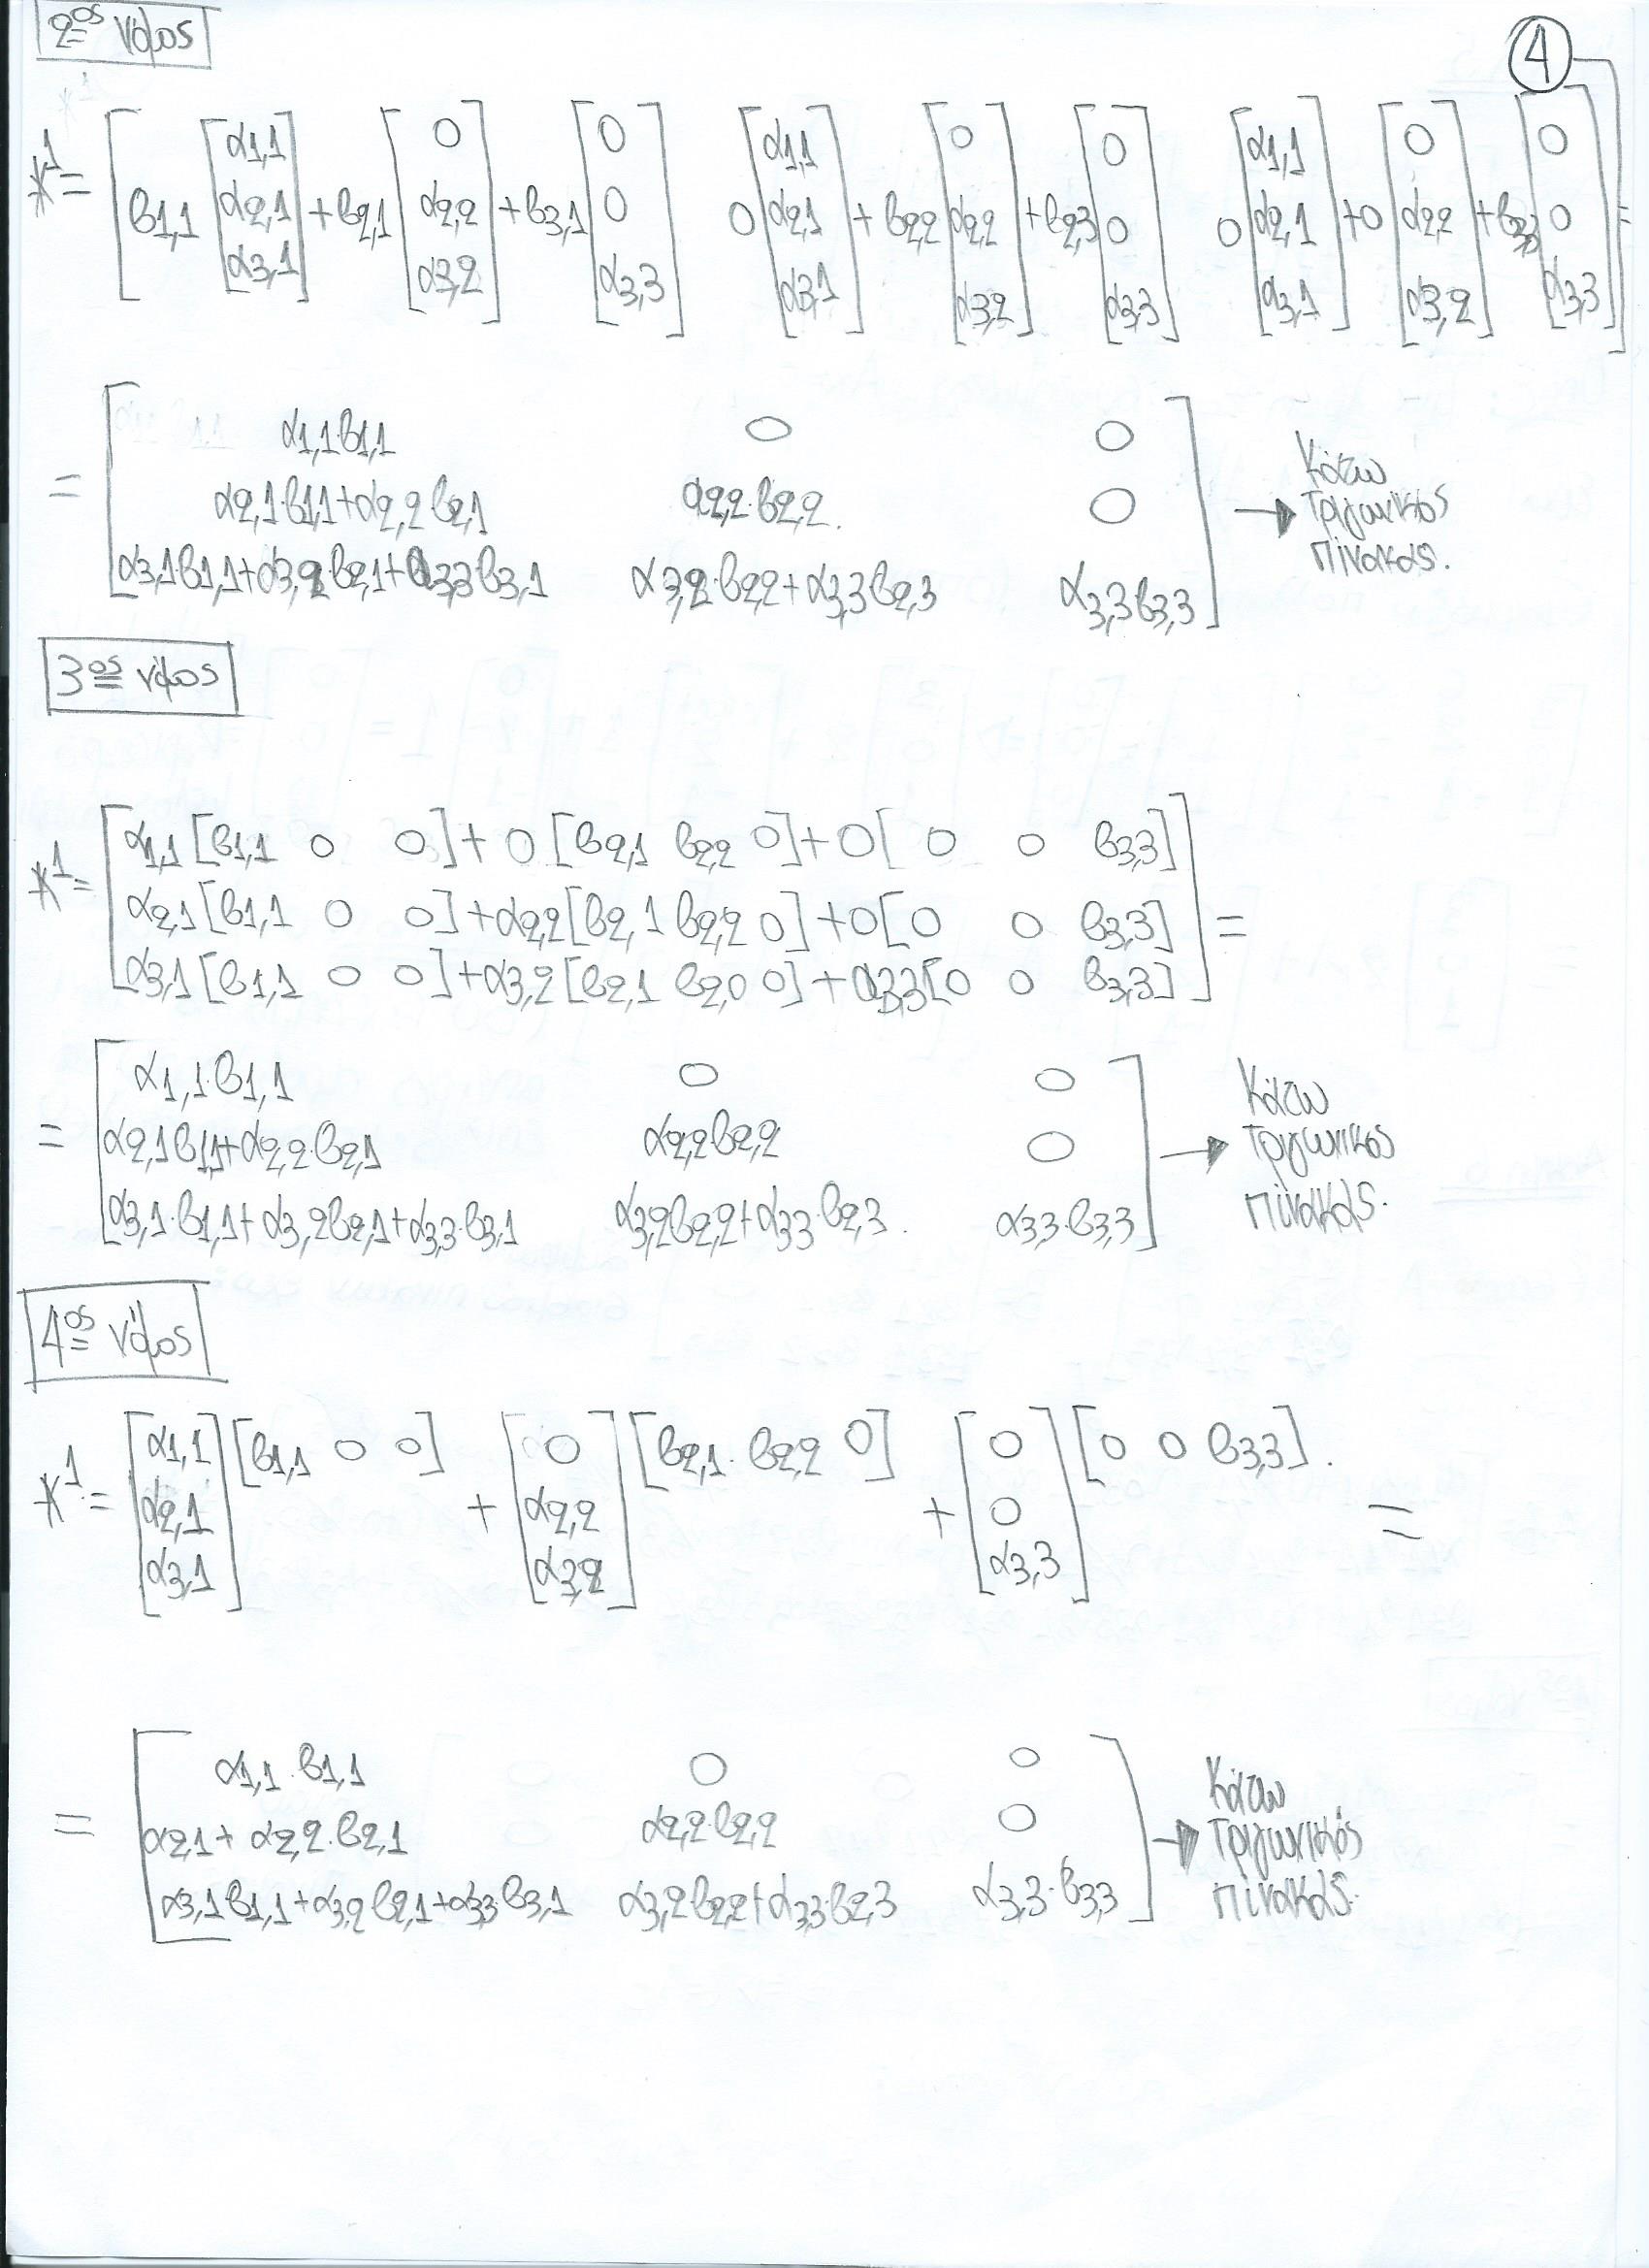 2ος νόμος
4
*1 = [ β1,1 [α1,1 α2,1 α3,1] + β2,1 [0 α2,2 α3,2] + β3,1 [0 0 α3,3]   0 [α1,1 α2,1 α3,1] + β2,2 [0 α2,2 α3,2] + β2,3 [0 0 α3,3]   0 [α1,1 α2,1 α3,1] + 0 [0 α2,2 α3,2] + β3,3 [0 0 α3,3] ] =
α1,1·β1,1   0   0
= α2,1·β1,1+α2,2 β2,1   α2,2·β2,2.   0
α3,1β1,1+α3,2·β2,1+α3,3β3,1   α3,2·β2,2+α3,3β2,3   α3,3β3,3
→ Κάτω
Τριγωνικος
πίνακας.
3ος νόμος
α1,1 [β1,1 0 0] + 0 [β2,1 β2,2 0] + 0 [0 0 β3,3]
*1 = α2,1 [β1,1 0 0] + α2,2 [β2,1 β2,2 0] + 0 [0 0 β3,3] =
α3,1 [β1,1 0 0] + α3,2 [β2,1 β2,0 0] + α3,3 [0 0 β3,3]
α1,1·β1,1   0   0
= α2,1β1,1+α2,2·β2,1   α2,2β2,2   0
α3,1·β1,1+α3,2β2,1+α3,3·β3,1   α3,2β2,2+α3,3·β2,3.   α3,3·β3,3
→ Κάτω
Τριγωνικος
πίνακας.
4ος νόμος
*1 = [α1,1 α2,1 α3,1] [β1,1 0 0] + [0 α2,2 α3,2] [β2,1·β2,2 0] + [0 0 α3,3] [0 0 β3,3]. =
α1,1·β1,1   0   0
= α2,1+α2,2·β2,1   α2,2·β2,2   0
α3,1β1,1+α3,2β2,1+α3,3·β3,1   α3,2β2,2+α3,3β2,3   α3,3·β3,3
→ Κάτω
Τριγωνικός
πίνακας.